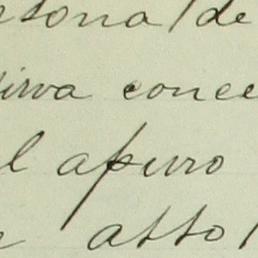 rsona / de
irva conce
l apuro
atto /